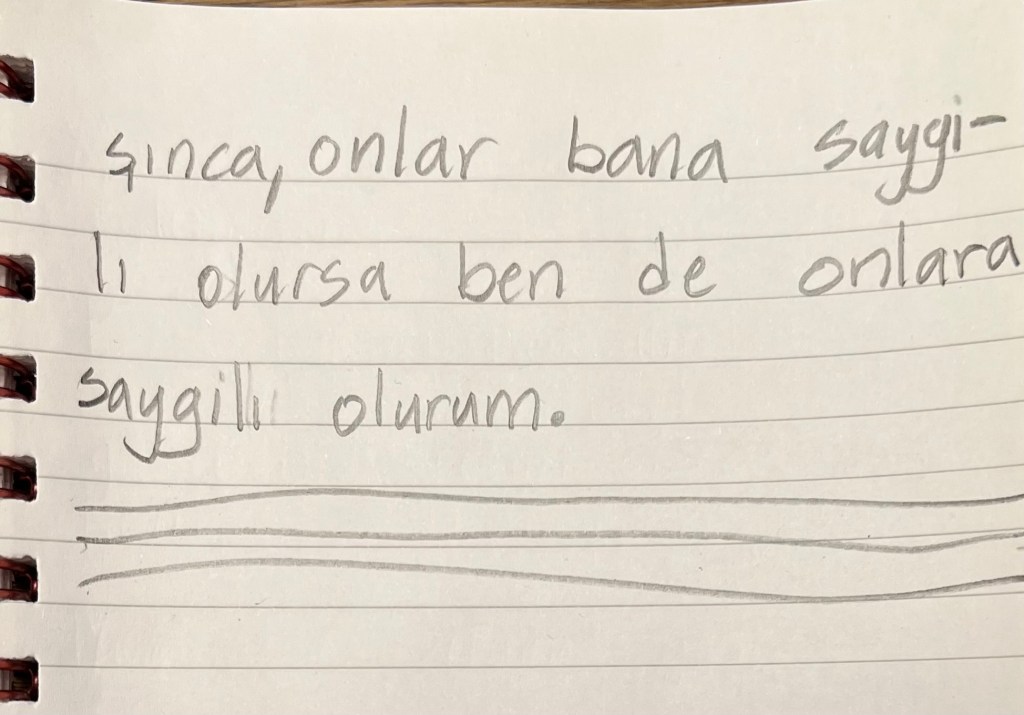 şınca, onlar bana saygi-
lı olursa ben de onlara
saygili olurum.